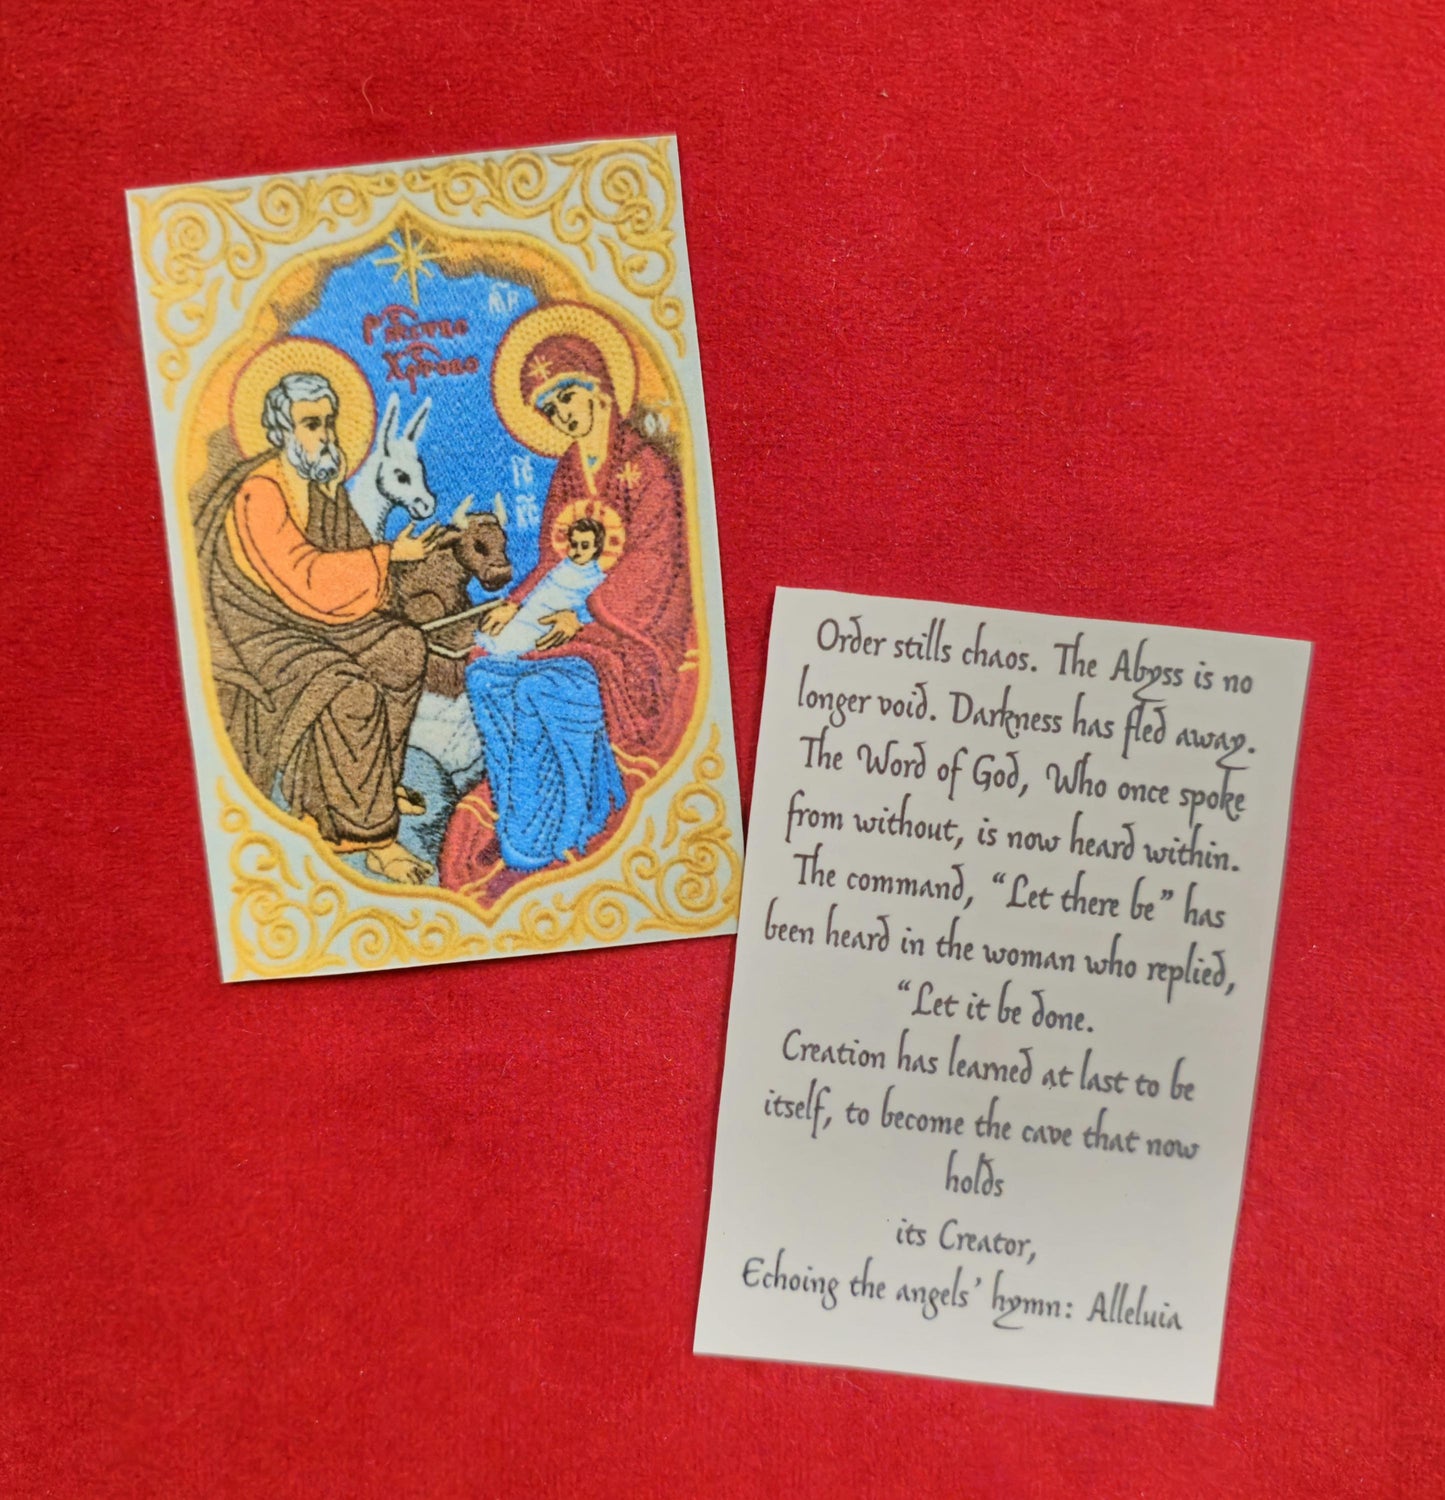 Рж҃ство
Хр҃тово
М҃Р
І҃С
Х҃С
Order stills chaos. The Abyss is no
longer void. Darkness has fled away.
The Word of God, Who once spoke
from without, is now heard within.
The command, “Let there be” has
been heard in the woman who replied,
“Let it be done.
Creation has learned at last to be
itself, to become the cave that now
holds
its Creator,
Echoing the angels’ hymn: Alleluia